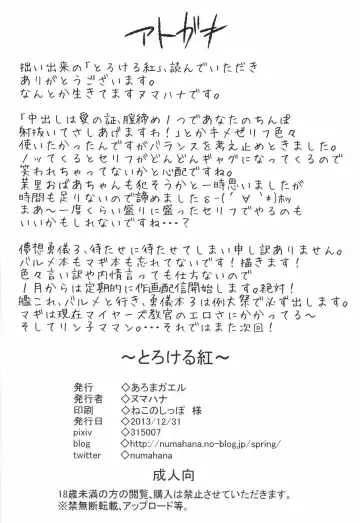 アトガキ
拙い出来の「とろける紅」、読んでいただき
ありがとうございます。
なんとか生きてますヌマハナです。
「中出しは愛の証、膣締め1つであなたのちんぽ
射抜いてさしあげますわ!」とかキメゼリフ色々
使いたかったんですがバランスを考え止めときました。
ノッてくるとセリフがどんどんギャグになってくるので
笑われちゃってないかと心配ですね。
菜里おばあちゃんも犯そうかと一時思いましたが
時間も足りないので諦めましたε-(´∀｀*)ホッ
まあ〜一度くらい盛りに盛ったセリフでやるのも
いいかもしれないですね・・・?
儚想勇儀3、待たせに待たせてしまい申し訳ありません。
バルメ本もマギ本も忘れてないです!描きます!
色々言い訳や内情言っても仕方ないので
1月からは定期的に作画配信開始します。絶対!
艦これ、バルメと行き、勇儀本3は例大祭で必ず出します。
マギは現在マイヤーズ教官のエロさにかかってる〜
そしてリン子ママン。・・・それではまた次回!
〜とろける紅〜
発行 ◇あろまガエル
発行者 ◇ヌマハナ
印刷 ◇ねこのしっぽ 様
発行日 ◇2013/12/31
pixiv ◇315007
blog ◇http://numahana.no-blog.jp/spring/
twitter ◇numahana
成人向
18歳未満の方の閲覧、購入は禁止させていただきます。
※禁無断転載、アップロード等。